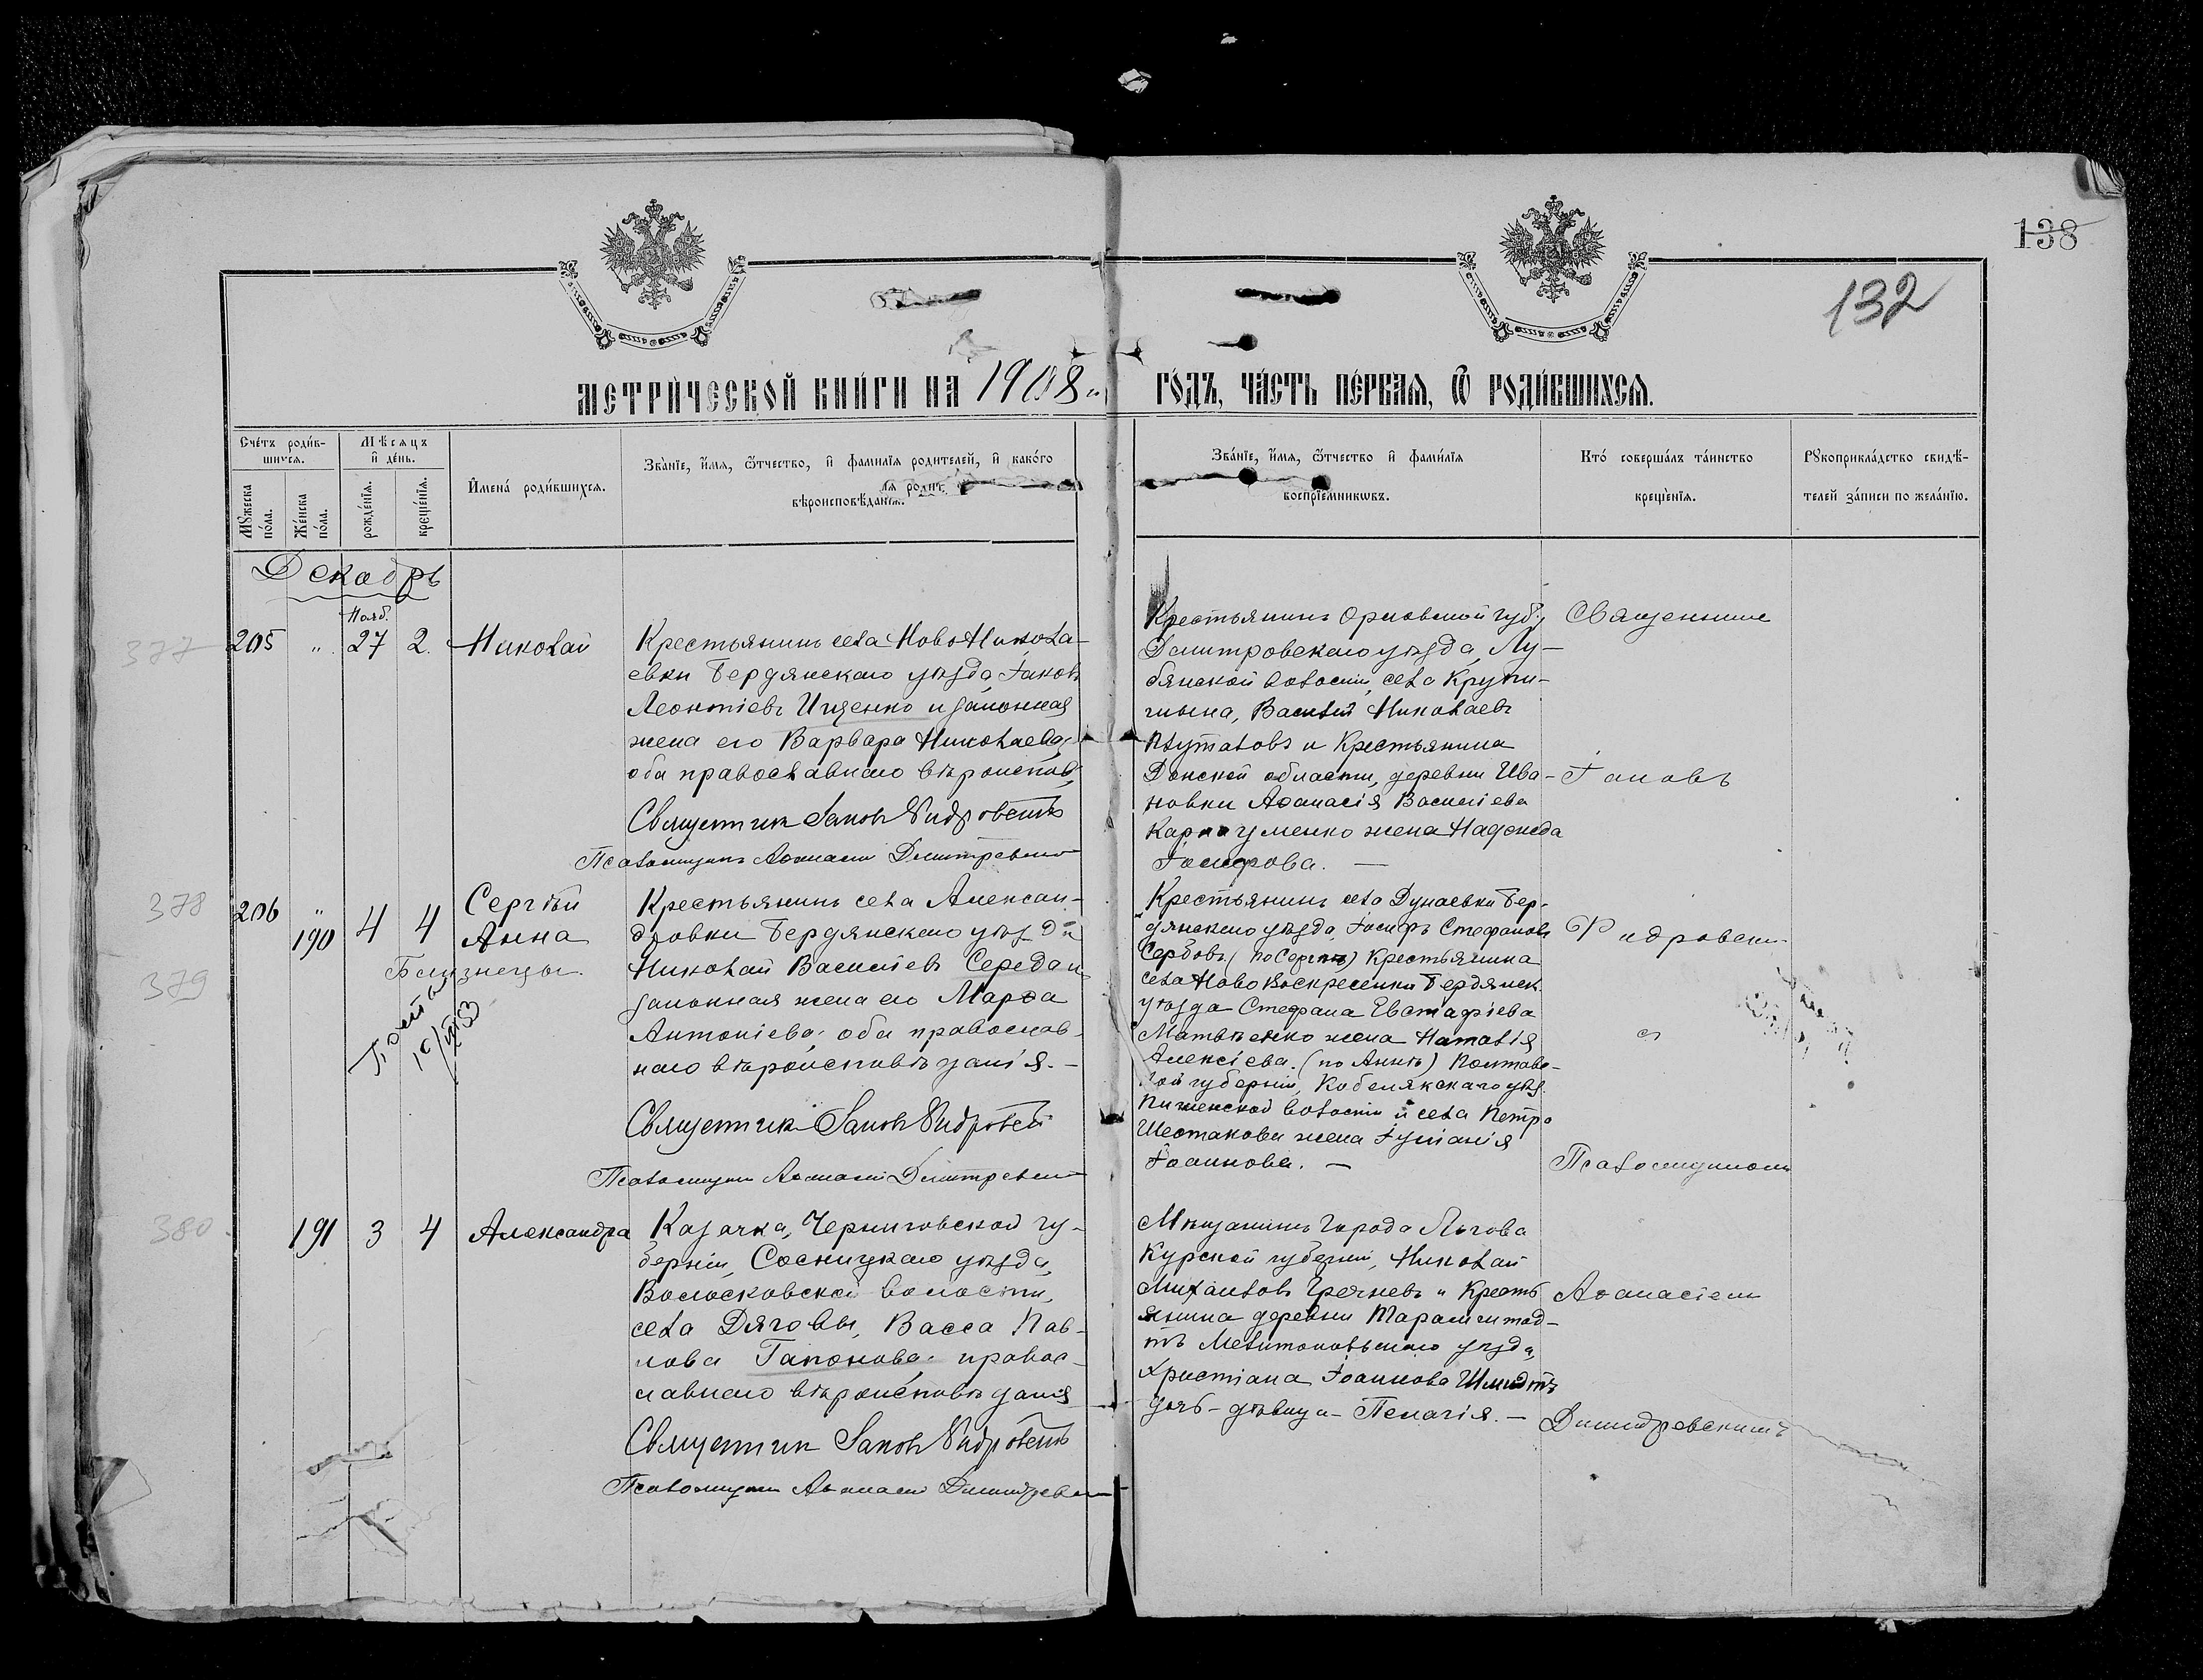 138
132
МЕТРИЧЕСКОЙ КНИГИ НА 1908 й
ГОДЪ, ЧАСТЬ ПЕРВАЯ, Ѿ РОДИВШИХСЯ.
Счетъ родившихся.
Мужеска пола.
Женска пола.
Мѣсяцъ и день.
рожденія.
крещенія.
Имена родившихся.
Званіе, имя, ѿтчество, и фамилія родителей, и какого
вѣроисповѣданія.
Званіе, имя, ѿтчество и фамилія
воспріемниковъ.
Кто совершалъ таинство
крещенія.
Рукоприкладство свидѣ-
телей записи по желанію.
Декабрь
377
205 " Нояб. 27 2. Николай
Крестьянинъ села Ново Никола-
евки Бердянскаго уѣзда, Іаковъ
Леонтіевъ Ищенко и законная
жена его Варвара Николаева,
оба православнаго вѣроиспов.
Священникъ Іаковъ Фидровскій
Псаломщикъ Аѳанасій Димитревскій
Крестьянинъ Орловской губ.,
Дмитровскаго уѣзда, Лу-
бянской волости, села Крупы-
шина, Василій Николаевъ
Плутатовъ и Крестьянина
Донской области, деревни Ива-
новки Аѳанасія Василіева
Карнауменко жена Надежда
Іосифова. —
378
379
206 " 4 4 Сергѣй
190 Анна
Близнецы.
10/VI 53
Крестьянинъ села Алексан-
дровки Бердянскаго уѣзда
Николай Василіевъ Середа и
законная жена его Марѳа
Антоніева, оба православ-
наго вѣроисповѣданія. —
Священникъ Іаковъ Фидровскій
Псаломщикъ Аѳанасій Димитревскій
Крестьянинъ села Дунаевки Бер-
дянскаго уѣзда, Іосифъ Стефановъ
Сербовъ (по Сергѣю) Крестьянина
села Ново Воскресенки Бердянск.
уѣзда Стефана Евстафіева
Матвѣенко жена Наталія
Алексіева. (по Аннѣ) Полтавс-
кой губерніи, Кобелякскаго уѣз.
волости и села Петра
Шестакова жена Іуліанія
Іоаннова. —
380
191 3 4 Александра
Казачка, Черниговской гу-
берніи, Сосницкаго уѣзда,
Волосковской волости,
села Дяговы, Васса Пав-
лова Гапонова, правос-
лавнаго вѣроисповѣданія
Священникъ Іаковъ Фидровскій
Псаломщикъ Аѳанасій Димитревскій
Мѣщанинъ города Льгова
Курской губерніи, Николай
Михаиловъ Гречневъ и Кресть-
янина деревни
Мелитопольскаго уѣзда,
Христіана Іоаннова Шмидтъ
дочь - дѣвица - Пелагія. —
Священникъ
Іаковъ
Фидровскій
съ
Псаломщикомъ
Аѳанасіемъ
Димитревскимъ